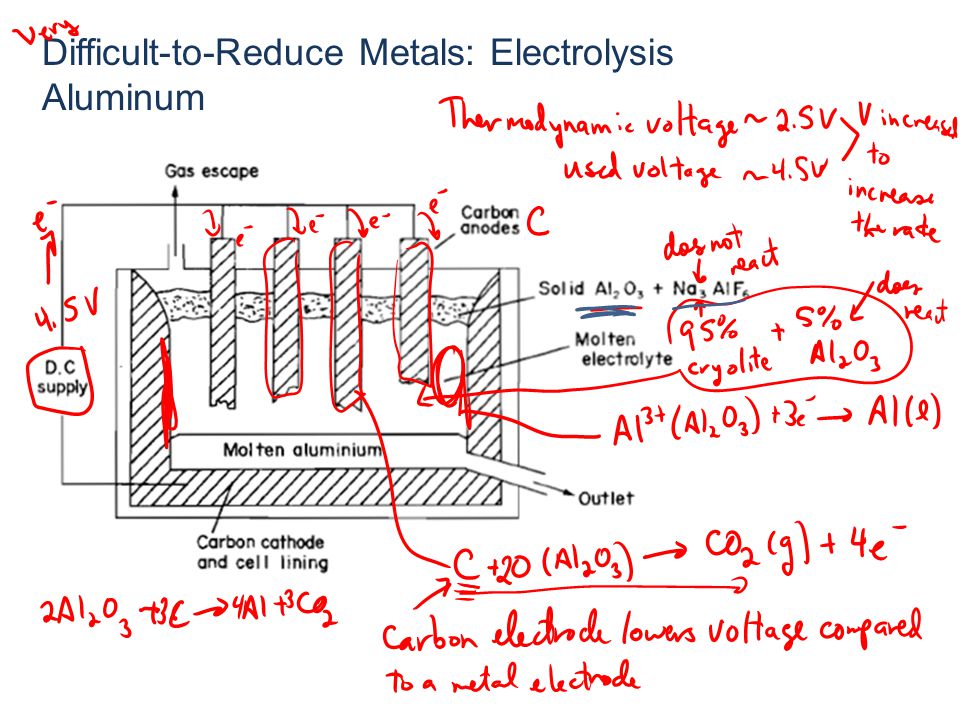 Very
Difficult-to-Reduce Metals: Electrolysis
Aluminum
Thermodynamic voltage ~ 2.5V
used voltage ~4.5V
V increased
to
increase
the rate
Gas escape
e⁻
e⁻
e⁻
e⁻
e⁻
Carbon
anodes
C
does not
react
Solid Al₂O₃ + Na₃AlF₆
does
react
4.5V
95%
cryolite
+ 5%
Al₂O₃
Molten
electrolyte
D.C
supply
Al³⁺(Al₂O₃) + 3e⁻ → Al(l)
Molten aluminium
Outlet
Carbon cathode
and cell lining
C + 2O (Al₂O₃) → CO₂ (g) + 4e⁻
2Al₂O₃ + 3C → 4Al + 3CO₂
Carbon electrode lowers voltage compared
to a metal electrode